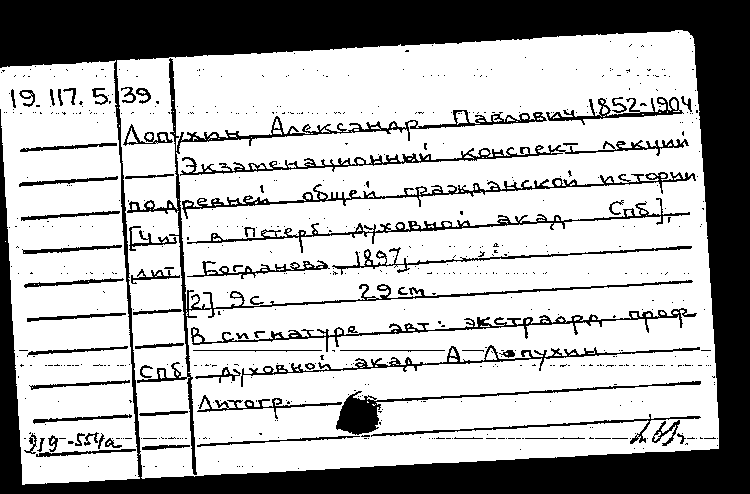 19. 117. 5. 39.
Лопухин, Александр Павлович, 1852-1904.
Экзаменационный конспект лекций
по древней общей гражданской истории
[Чит. в Петерб. духовной акад. Спб.],
лит. Богданова, 1897,
[2], 9 с. 29 cm.
В сигнатуре авт.: экстраорд. проф.
Спб. духовной акад. А. Лопухин.
Литогр.
919-554а